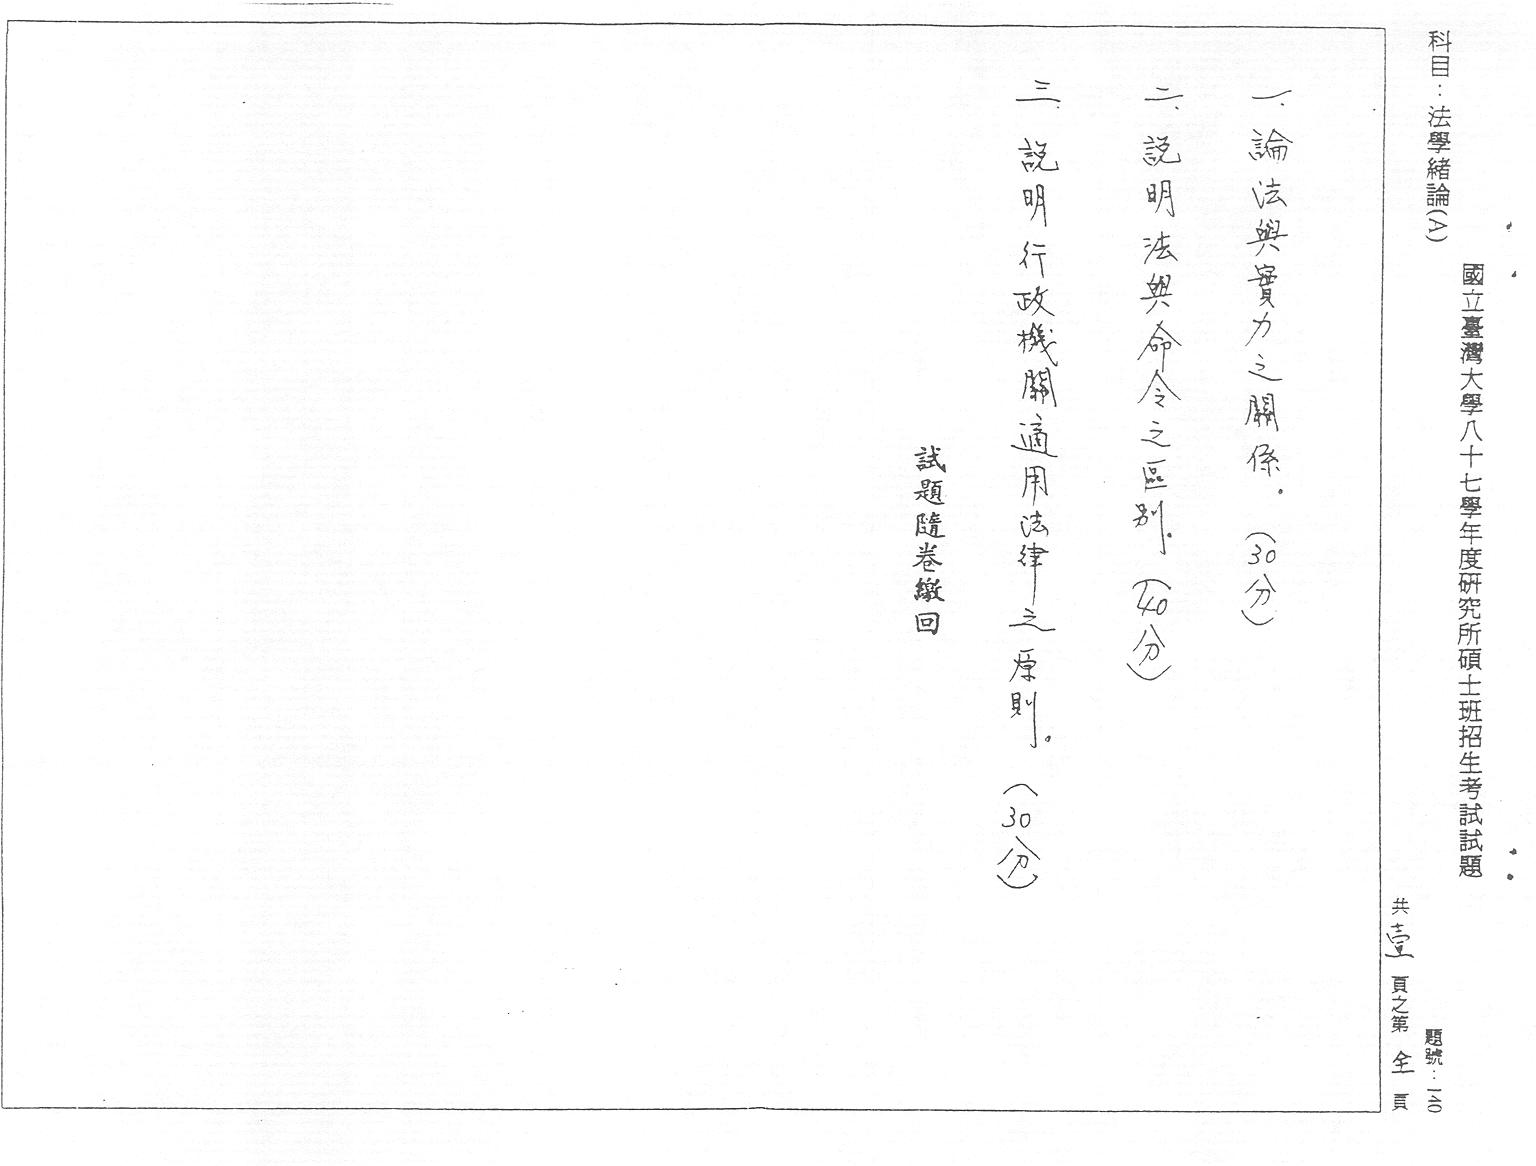 國立臺灣大學八十七學年度研究所碩士班招生考試試題
科目：法學緒論(A)
題號：140
共壹頁之第全頁
一、論法與實力之關係。(30分)
二、說明法與命令之區別。(40分)
三、說明行政機關適用法律之原則。(30分)
試題隨卷繳回